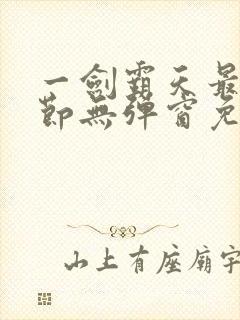 一劍霸天最
節無彈窗免
山上有座廟宇